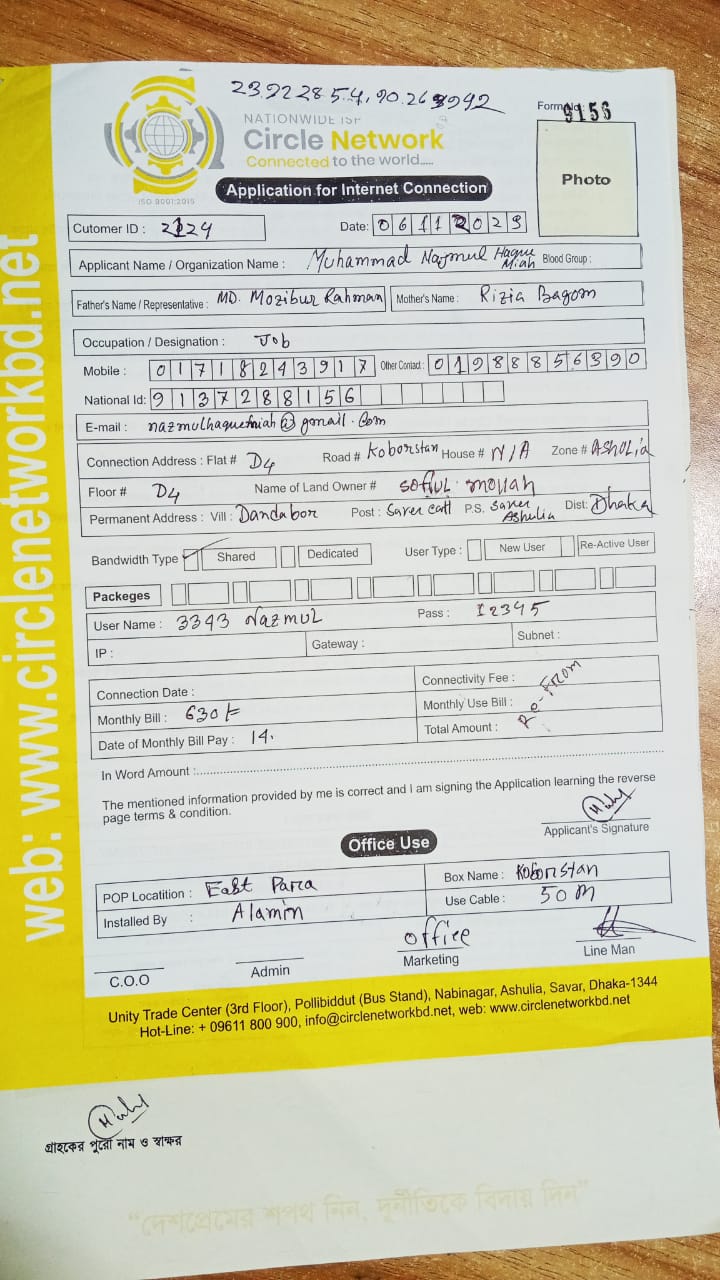 NATIONWIDE ISP
Form No: 9156
Circle Network
Connected to the world.....
ISO 9001:2015
Photo
Application for Internet Connection
Cutomer ID : 2124
Date: 06112023
Applicant Name / Organization Name : Muhammad Nazmul Haque Miah Blood Group :
Father's Name / Representative : MD. Mozibur Rahman Mother's Name : Rizia Bagom
Occupation / Designation : Job
Mobile : 01718243917 Other Contact : 01988856390
National Id: 9137288156
E-mail : nazmulhaquemiah@gmail.com
Connection Address : Flat # D4 Road # Koborstan House # N/A Zone # ASHULia
Floor # D4 Name of Land Owner # sofiul mollah
Permanent Address : Vill : Dandabor Post : Saver P.S. Saver Ashulia Dist: Dhaka
Bandwidth Type Shared Dedicated User Type : New User Re-Active User
Packeges
User Name : 3343 Nazmul Pass : 12345
IP : Gateway : Subnet :
Connection Date : Connectivity Fee :
Monthly Bill : 630/= Monthly Use Bill :
Date of Monthly Bill Pay : 14. Total Amount : Re-FROM
In Word Amount :
The mentioned information provided by me is correct and I am signing the Application learning the reverse
page terms & condition.
Applicant's Signature
Office Use
POP Locatition : East Parra Box Name : Koborstan
Installed By : Alamin Use Cable : 50 m
office
C.O.O Admin Marketing Line Man
Unity Trade Center (3rd Floor), Pollibiddut (Bus Stand), Nabinagar, Ashulia, Savar, Dhaka-1344
Hot-Line: + 09611 800 900, info@circlenetworkbd.net, web: www.circlenetworkbd.net
web: www.circlenetworkbd.net
গ্রাহকের পুরো নাম ও স্বাক্ষর
“দেশপ্রেমের শপথ নিন, দূর্নীতিকে বিদায় দিন”